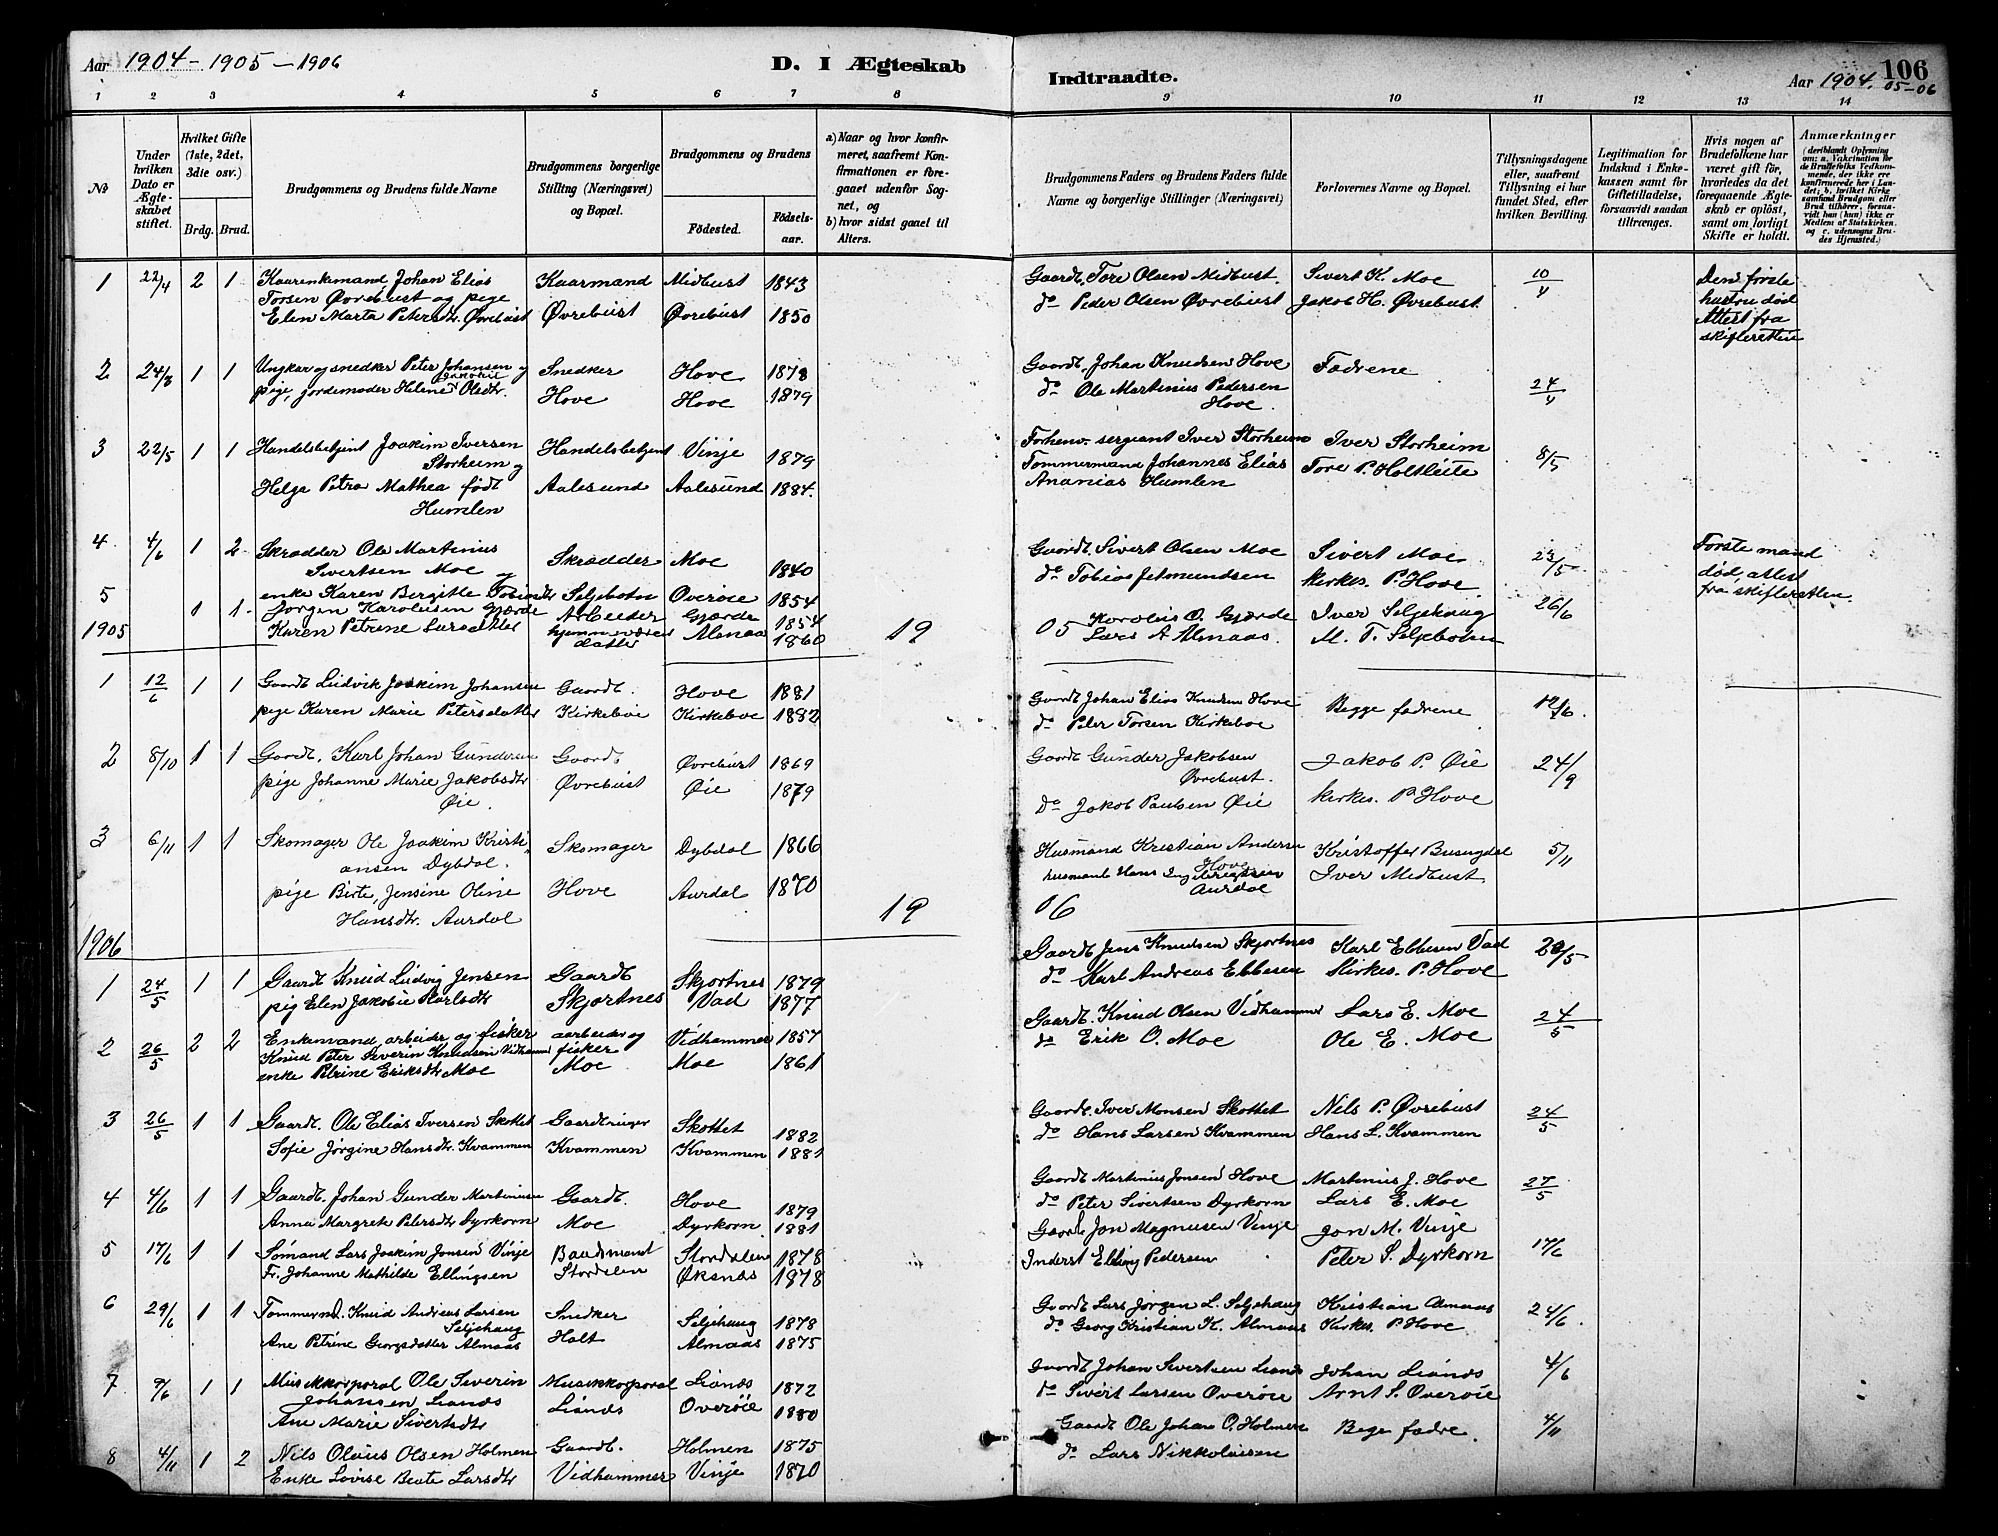 Aar 1904 - 1905 - 1906
D. I Ægteskab
Indtraadte.
Aar 1904. 05-06
106
1 2 3 4 5 6 7 8 9 10 11 12 13 14
№
Under hvilken Dato er Ægteskabet stiftet.
Hvilket Gifte (1ste, 2det, 3die osv.)
Brdg. Brud.
Brudgommens og Brudens fulde Navne
Brudgommens borgerlige Stilling (Næringsvei) og Bopæl.
Brudgommens og Brudens
Fødested.
Fødselsaar.
a) Naar og hvor konfirmeret, saafremt Konfirmationen er foregaaet udenfor Sognet, og
b) hvor sidst gaaet til Alters.
Brudgommens Faders og Brudens Faders fulde Navne og borgerlige Stillinger (Næringsvei)
Forlovernes Navne og Bopæl.
Tillysningsdagene eller, saafremt Tillysning ei har fundet Sted, efter hvilken Bevilling.
Legitimation for Indskud i Enkekassen samt for Giftetilladelse, forsaavidt saadan tiltrænges.
Hvis nogen af Brudefolkene har været gift før, hvorledes da det foregaaende Ægteskab er opløst, samt om lovligt Skifte er holdt.
Anmærkninger
(deriblandt Oplysning om: a. Vakcination for de Brudefolks Vedkommende, der ikke ere konfirmerede her i Landet; b. hvilket Kirkesamfund Brudgom eller Brud tilhører, forsaavidt han (hun) ikke er Medlem af Statskirken, og c. udensogns Brudes Hjemsted.)
1 22/4 2 1 Johan Elias Kaarmand Midbust 1843 Gaardb. Tore Olsen Midbust Sivert K. Moe 10/4 Den første
Torsen Øvrebust og pige hustru død
Elen Marta Petersdtr. Øvrebust Øvrebust Øvrebust 1850 do Peder Olsen Øvrebust Jakob H. Øvrebust Attest fra
skifteretten
2 24/3 1 1 Ungkar og snedker Peter Johansen og Snedker Hove 1878 Gaardb. Johan Knudsen Hove Fædrene 24/4
pige, jordemoder Helene Olsdtr. Hove Hove 1879 do Ole Martinius Pedersen
Hove.
3 22/5 1 1 Handelsbetjent Joakim Iversen Handelsbetjent Vinje 1879 Forhenv. sergeant Iver Storheim Iver Storheim 8/5
Storheim og Tømmermand Johannes Elias Tore P. Holtleite
Helga Petra Mathea født Aalesund Aalesund 1884. Ananias Humlen
Humlen
4 4/6 1 2 Skrædder Ole Martinus Skrædder Moe 1840 Gaardb. Sivert Olsen Moe Sivert Moe 23/5 Første mand
Sivertsen Moe og død, attest
enke Karen Bergitte Tobiasdtr Seljebotn Overøie 1854 do Tobias Jetmundsen kirkes. P. Hove fra skifteretten
5 1 1 Jørgen Karolusen Gjærde Arbeider Gjærde 1854 Karolus O. Gjærde Iver Seljehaug 26/6
1905 Karen Petrine Larsdatter Almaas 1860 19 05 Lars A Almaas. M. T. Seljebotn
1 12/6 1 1 Gaardb Ludvik Joakim Johansen Gaardb. Hove 1881 Gaardb Johan Elias Knudsen Hove Begge fædrene 12/6.
pige Karen Marie Petersdatter Kirkebøe Kirkebøe 1882 do Peter Torsen Kirkebøe
2 8/10 1 1 Gaardb. Karl Johan Gundersen Gaardb Øvrebust 1869 Gaardb Gunder Jakobsen Jakob P. Øie 24/9
pige Johanne Marie Jakobsdtr Øvrebust Øie 1879 Øvrebust.
Øie. do Jakob Paulsen Øie kirkes. P. Hove
3 6/11 1 1 Skomager Ole Joakim Kristi- Skomager Dybdal 1866 Husmand Kristian Andersen Kristoffer Busengdal 5/11
ansen Dybdal. Hove
pige Birte, Jensine Oline Hove Aurdal 1870 husmand Hans Aurdal Iver Midbust
Hansdtr. Aurdal 19 06
1906
1 24/5 1 1 Gaardb Knud Ludvig Jensen Gaardb Skjortnes 1879 Gaardb Jens Knudsen Skjortnes Karl Ebbesen Vad 20/5
pig Elen Jakobie Karlsdtr Skjortnes Vad 1877 do Karl Andreas Ebbesen Kirkes. P. Hove
2 26/5 2 2 Enkemand, arbeider og fisker aarbeider og Vidhammer 1857 Gaardb. Knud Olsen Vidhammer Lars E. Moe 24/5
Knud Peter Severin Knudsen Vidhammer fisker
enke Petrine Eriksdtr Moe Moe Moe 1861 do Erik O. Moe Ole E. Moe
3 26/5 1 1 Gaardb. Ole Elias Iversen Skottet Gaardbruger Skottet 1882 Gaardb. Iver Monsen Skottet Nils P. Øvrebust 24/5
Sofie Jørgine Hansdtr. Kvammen Kvammen Kvammen 1881 do Hans Larsen Kvammen Hans L. Kvammen
4 4/6 1 1 Gaardb. Johan Gunder Martinusen Gaardb. Hove 1879 Gaardb Martinius Jonsen Hove Martinius J. Hove 27/5
Anna Margrete Petersdtr Dyrkorn Moe Dyrkorn 1881 do Peter Sivertsen Dyrkorn Lars E. Moe
5 17/6 1 1 Sømand Lars Joakim Jonsen Vinje Baadsmand Stordalen 1878 Gaardb Jon Magnusen Vinje Jon M. Vinje 17/6
Fr. Johanne Mathilde Ellingsen Stordalen Øksnæs 1878 Inderst Elling Pedersen Peter S. Dyrkorn
6 29/6 1 1 Tømmermd. Knud Andreas Larsen Snedker Seljehaug 1878 Gaardb Lars Jørgen L. Seljehaug Kristian Almaas 24/6
Seljehaug
Ane Petrine Georgsdatter Almaas Holt Almaas 1875 do Georg Kristian K. Almaas Kirkes. P. Hove
7 9/6 1 1 Musikkorporal Ole Severin Musikkorporal Lianæs 1872 Gaardb Johan Sivertsen Lianæs Johan Lianæs 4/6
Johansen Lianæs Lianæs Overøie 1880 do Sivert Larsen Overøie Arnt S. Overøie
Ane Marie Sivertsdtr
8 4/11 1 2 Nils Olaus Olsen Holmen Gaardb. Holmen 1875 Gaardb Ole Johan O. Holmen Bege fædre. 4/11
Enke Lovise Beate Larsdtr Vidhammer Vinje 1870 do Lars Nikkolaisen